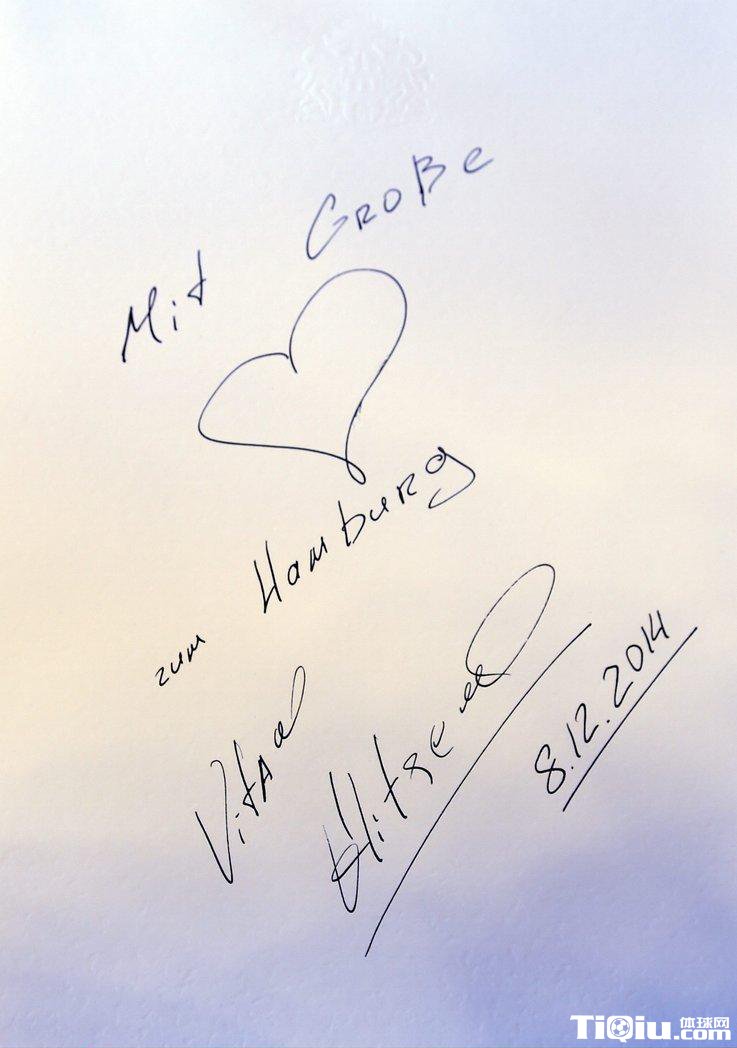 Mit Große
zum Hamburg
Vitali Klitschko
8.12.2014
TiQiu体球网.com